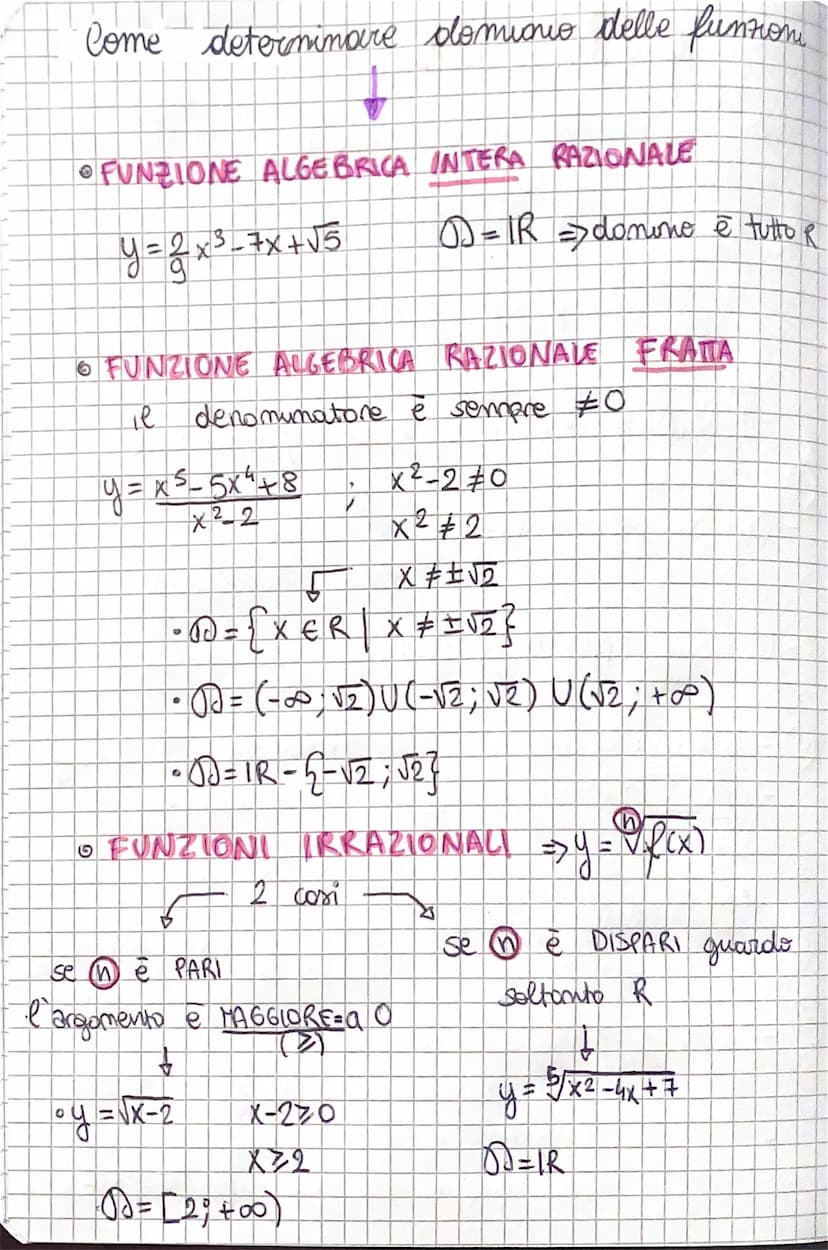 Come determinare dominio delle funzioni
• FUNZIONE ALGEBRICA INTERA RAZIONALE
y = 2/9 x³ - 7x + √5 D = ℝ ⇒ dominio è tutto R
• FUNZIONE ALGEBRICA RAZIONALE FRATTA
il denominatore è sempre ≠ 0
y = (x⁵ - 5x⁴ + 8)/(x² - 2) ; x² - 2 ≠ 0
x² ≠ 2
x ≠ ±√2
• D = {x ∈ R | x ≠ ±√2}
• D = (-∞; √2) ∪ (-√2; √2) ∪ (√2; +∞)
• D = ℝ - {-√2; √2}
• FUNZIONI IRRAZIONALI ⇒ y = ⁿ√f(x)
2 casi
se n è PARI
l'argomento è MAGGIORE= a 0
(≥)
• y = √x-2 x-2 ≥ 0
x ≥ 2
D = [2; +∞)
se n è DISPARI guardo
soltanto R
y = ⁵√x2 - 4x + 7
D = ℝ